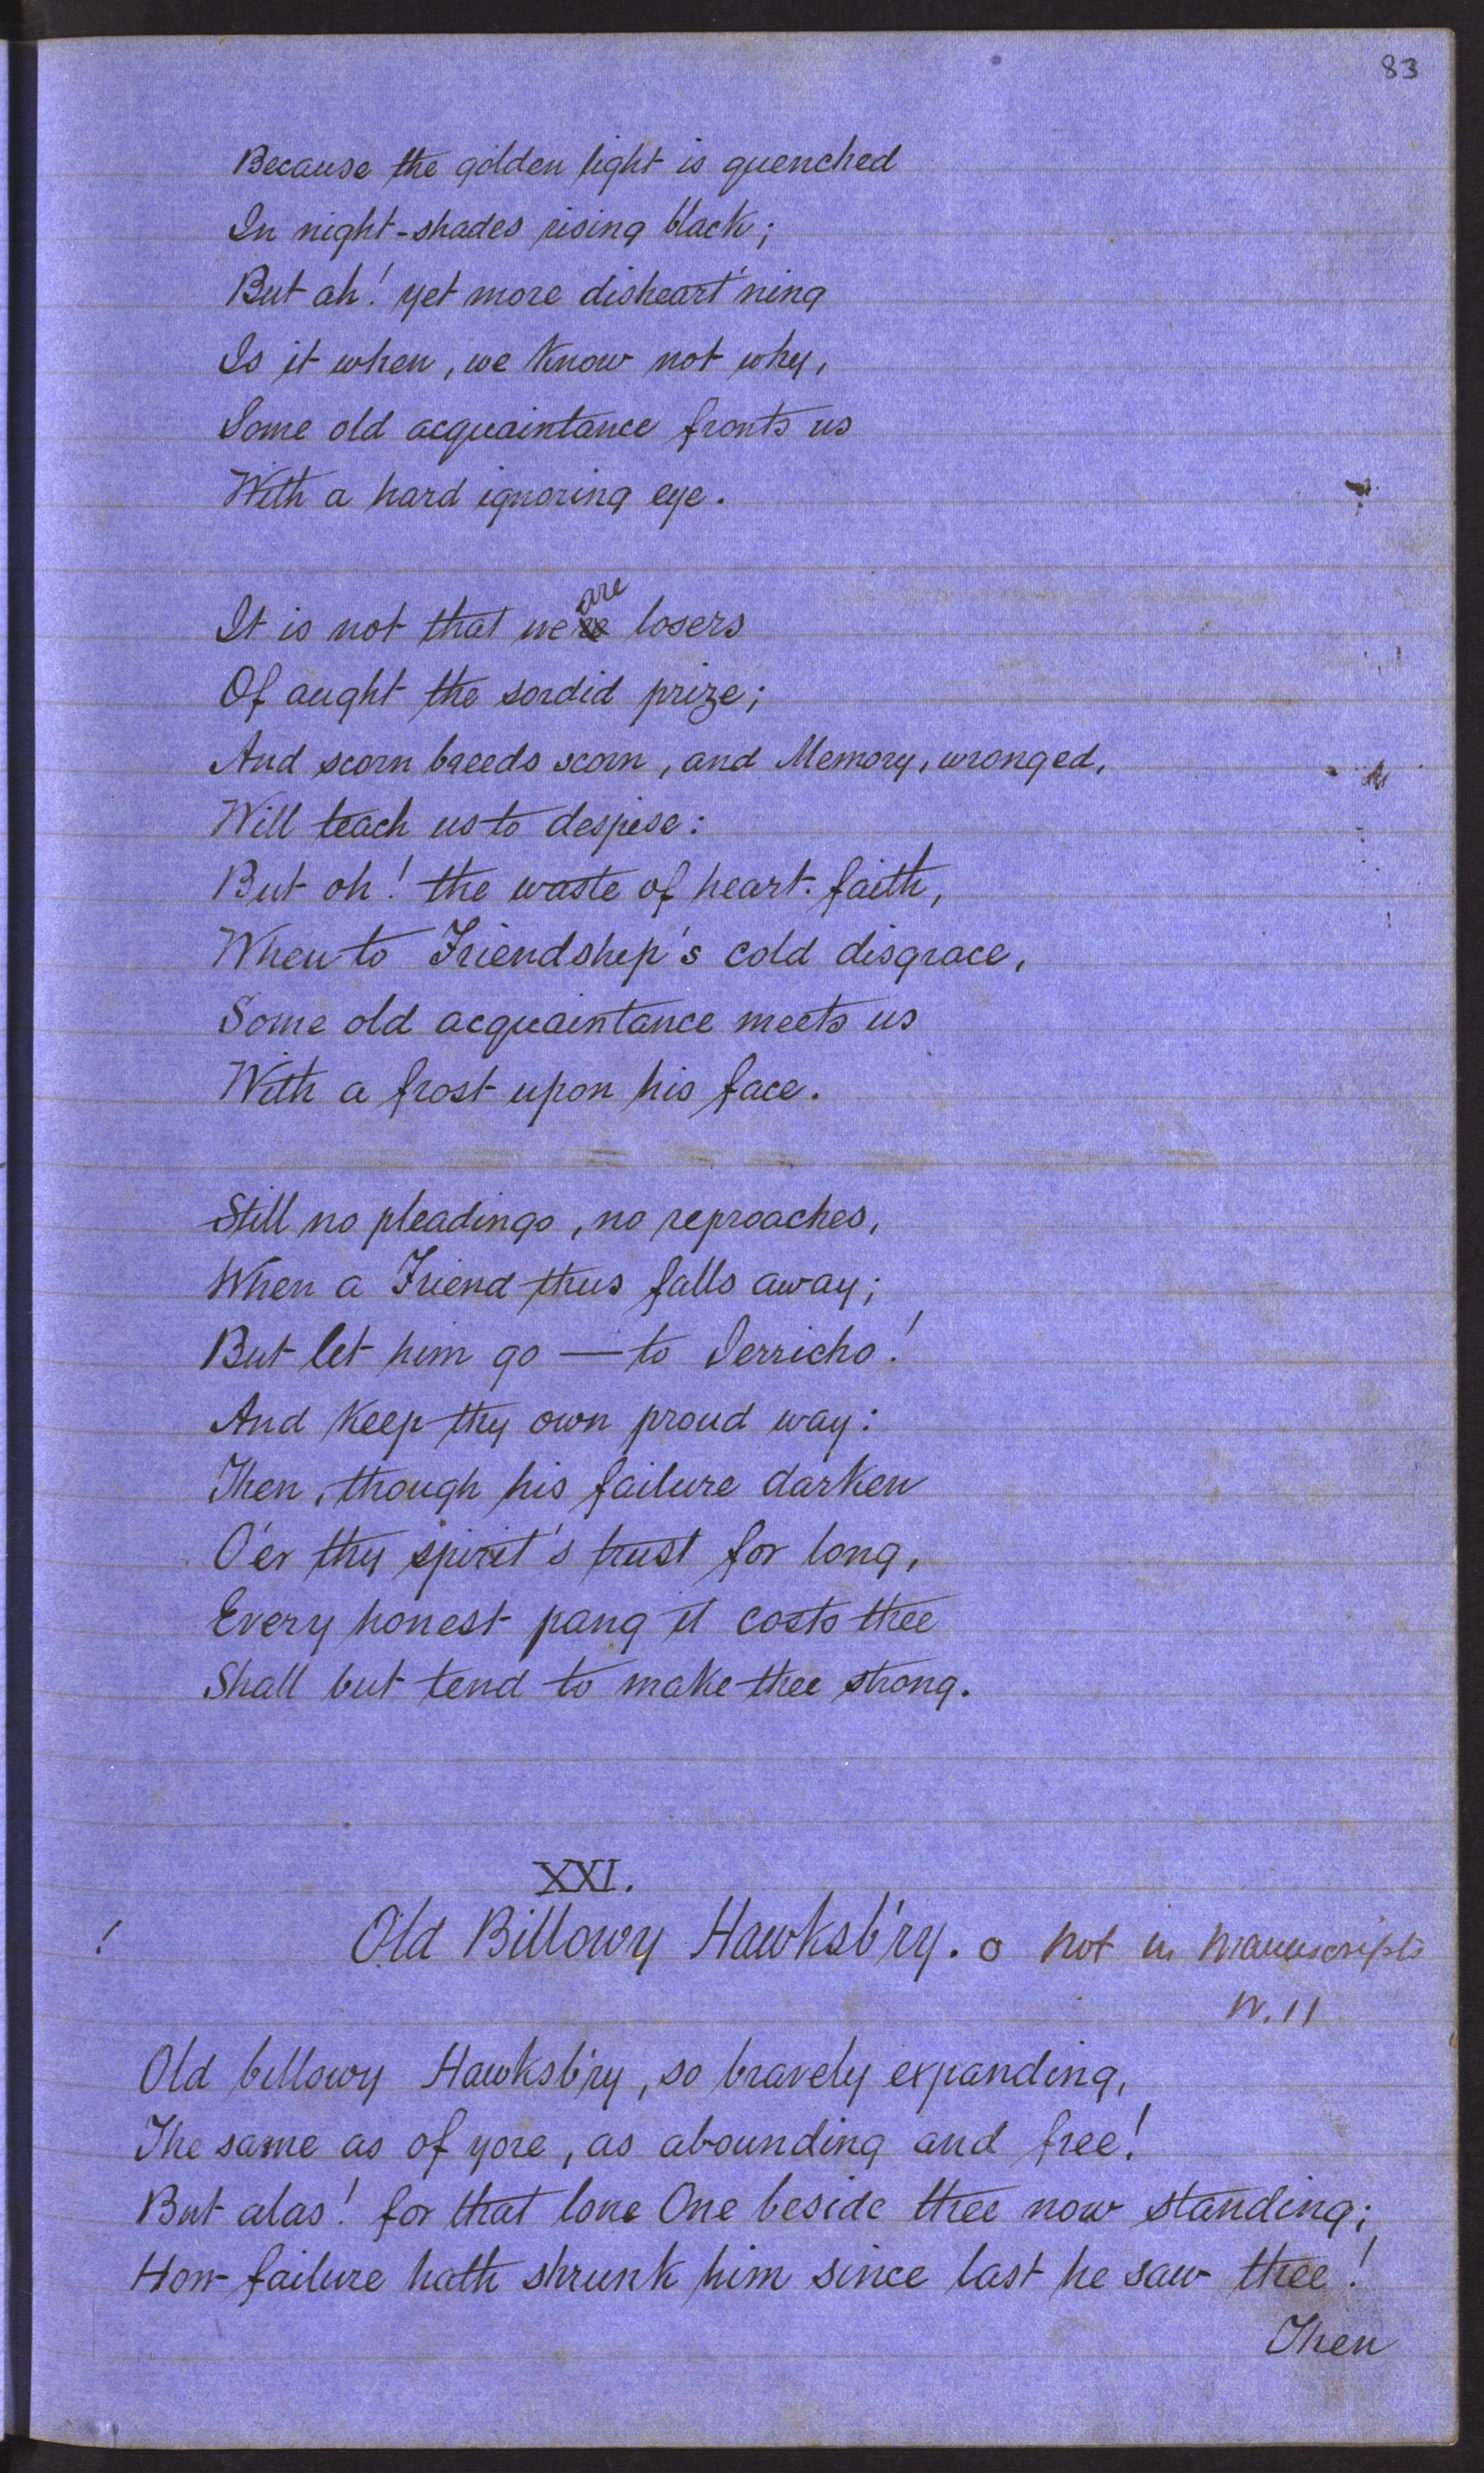 83
Because the golden light is quenched
In night-shades rising black;
But ah! yet more disheart'ning
Is it when, we know not why,
Some old acquaintance fronts us
With a hard ignoring eye.
are
It is not that we losers
Of aught the sordid prize;
And scorn breeds scorn, and Memory, wronged,
Will teach us to despise:
But oh! the waste of heart-faith,
When to Friendship's cold disgrace,
Some old acquaintance meets us
With a frost upon his face.
Still no pleadings, no reproaches,
When a Friend thus falls away;
But let him go — to Jerricho!
And keep thy own proud way:
Then, though his failure darken
O'er thy spirit's trust for long,
Every honest pang it costs thee
Shall but tend to make thee strong.
XXI.
! Old Billowy Hawksb'ry. o not in Manuscripts
Old billowy Hawksb'ry, so bravely expanding,
The same as of yore, as abounding and free!
But alas! for that lone One beside thee now standing;
How failure hath shrunk him since last he saw thee!
Then